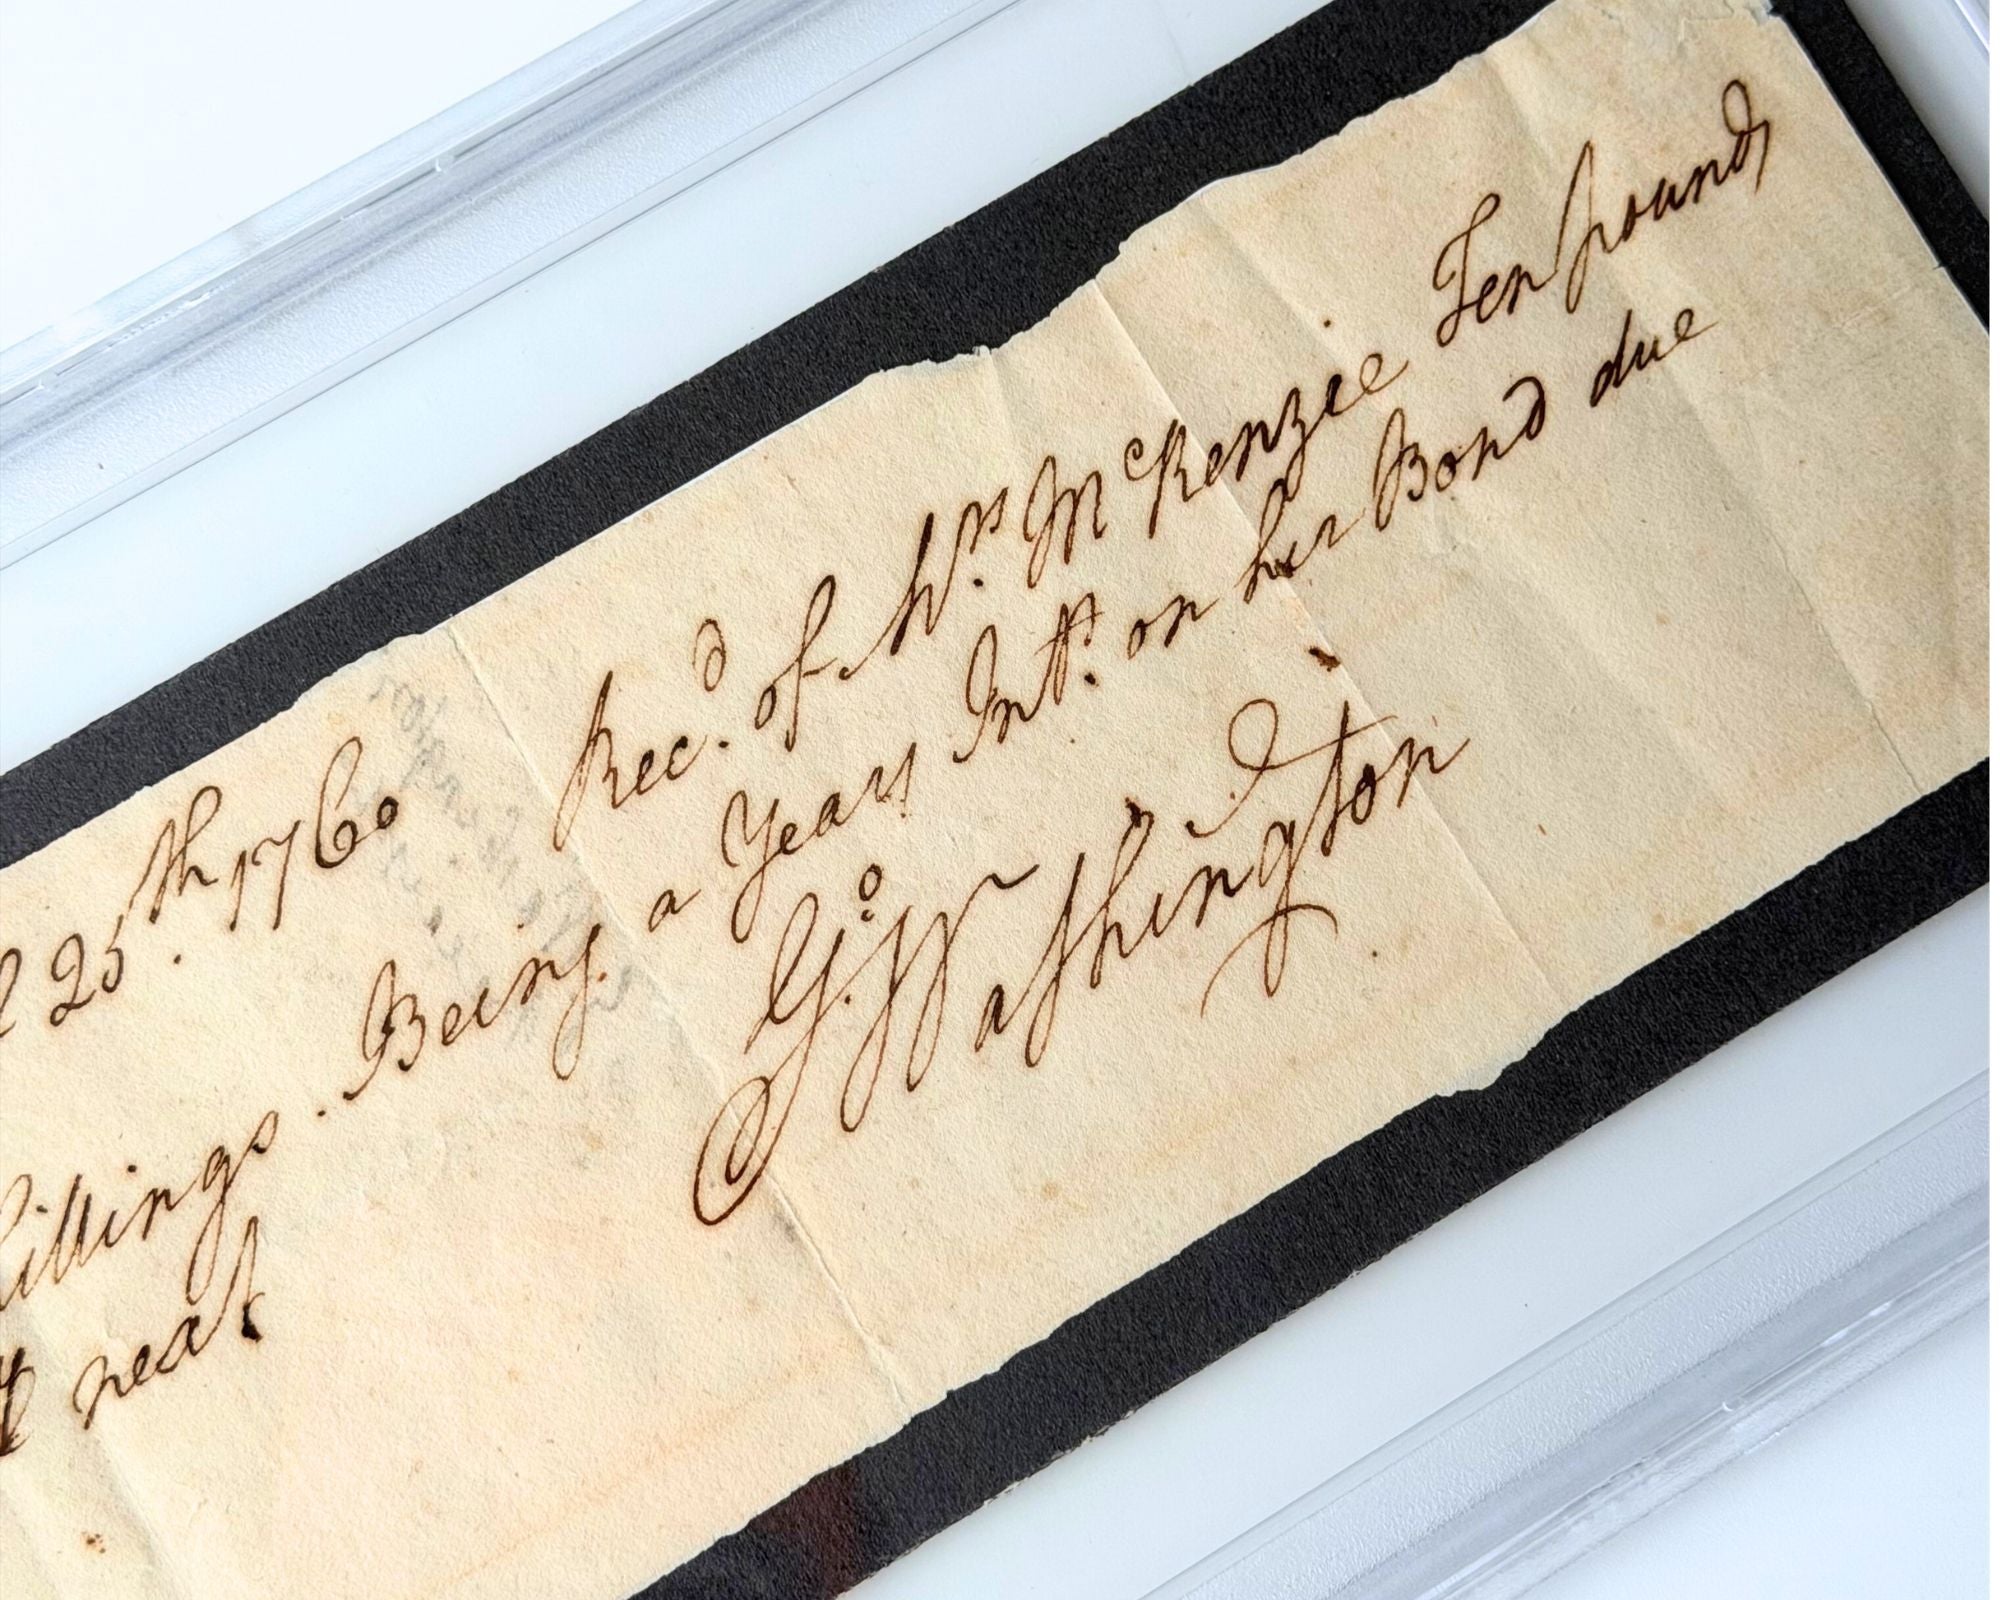 l 25th. 1760 Rec.d of Mrs. McKenzie Ten pounds
hillings. Being a Years Intt. on her Bond due
next Go: Washington